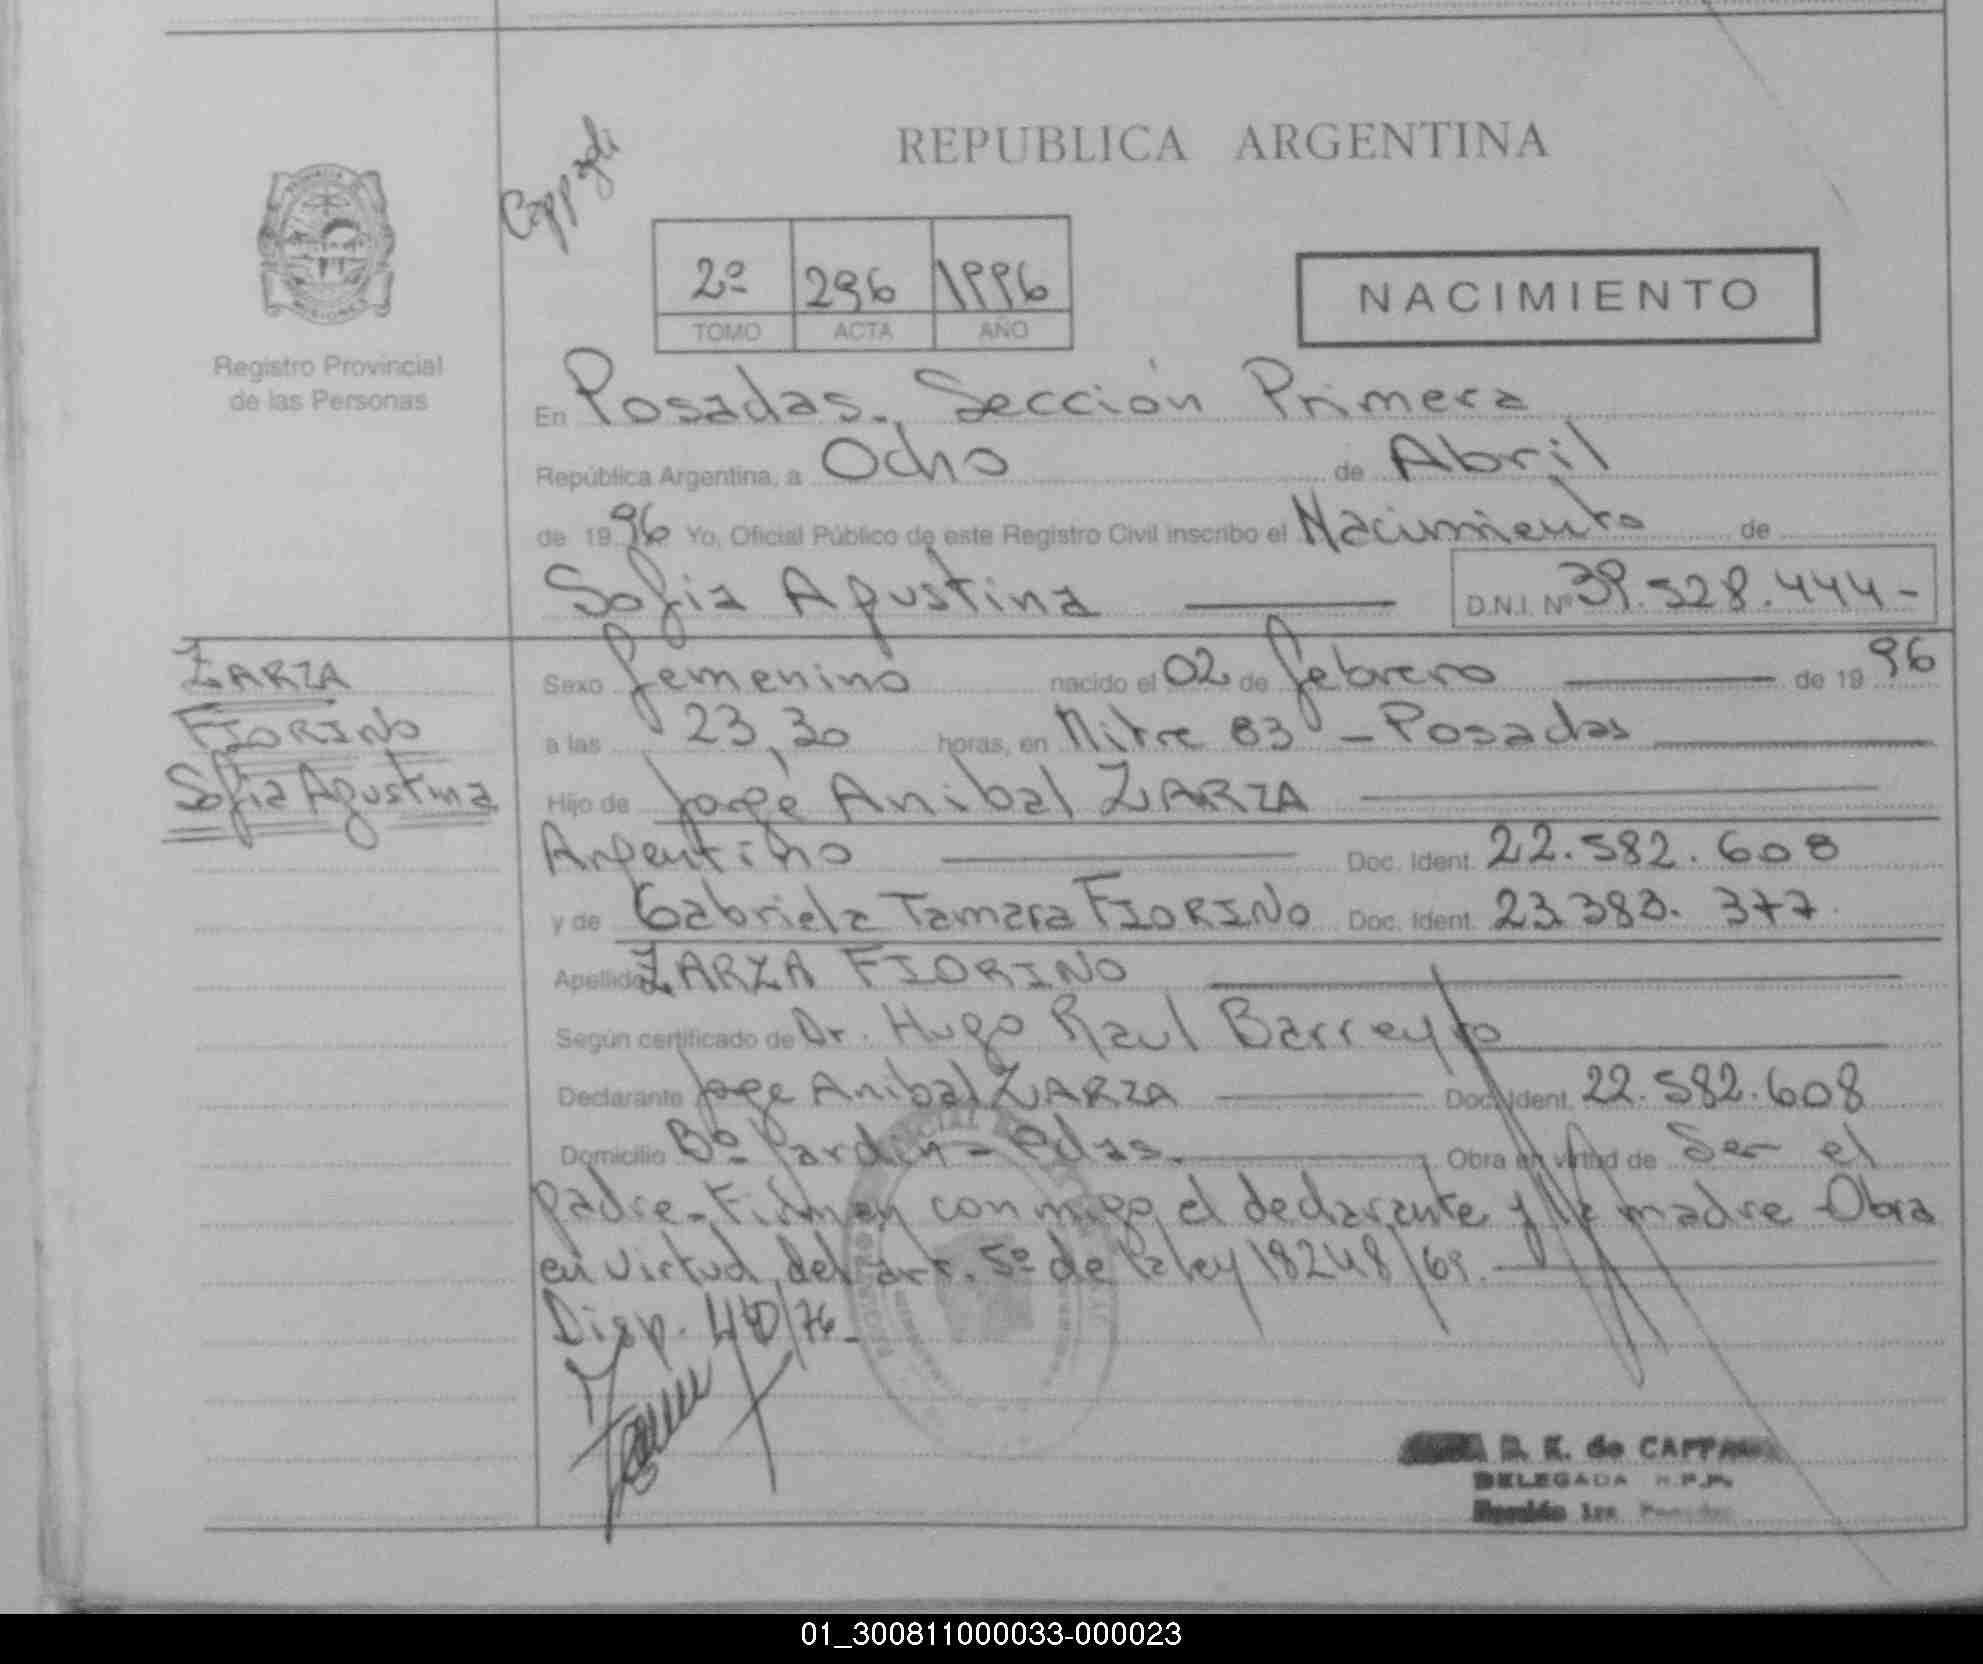 REPUBLICA ARGENTINA
2º 296 1996
TOMO ACTA AÑO
NACIMIENTO
Registro Provincial
de las Personas
En Posadas. Sección Primera
República Argentina, a Ocho de Abril
de 1996 Yo, Oficial Público de este Registro Civil inscribo el Nacimiento de
Sofia Agustina D.N.I. Nº 39.528.444-
ZARZA
FIORINO
Sofia Agustina
Sexo femenino nacido el 02 de febrero de 1996
a las 23,30 horas, en Mitre 83 - Posadas
Hijo de Jorge Anibal ZARZA
Argentino Doc. Ident. 22.582.608
y de Gabriela Tamara FIORINO Doc. Ident. 23.383.377.
Apellido ZARZA FIORINO
Según certificado de Dr. Hugo Raul Barreyro
Declarante Jorge Anibal ZARZA Doc. Ident. 22.582.608
Domicilio Bº Jardin - Pdas. Obra en virtud de Ser el
padre. Firman conmigo el declarante y la madre - Obra
en virtud del art. 5º de la ley 18248/69.
Disp. 440/76.
D. K. de
DELEGADA R.P.P.
Sección 1ra
01_300811000033-000023